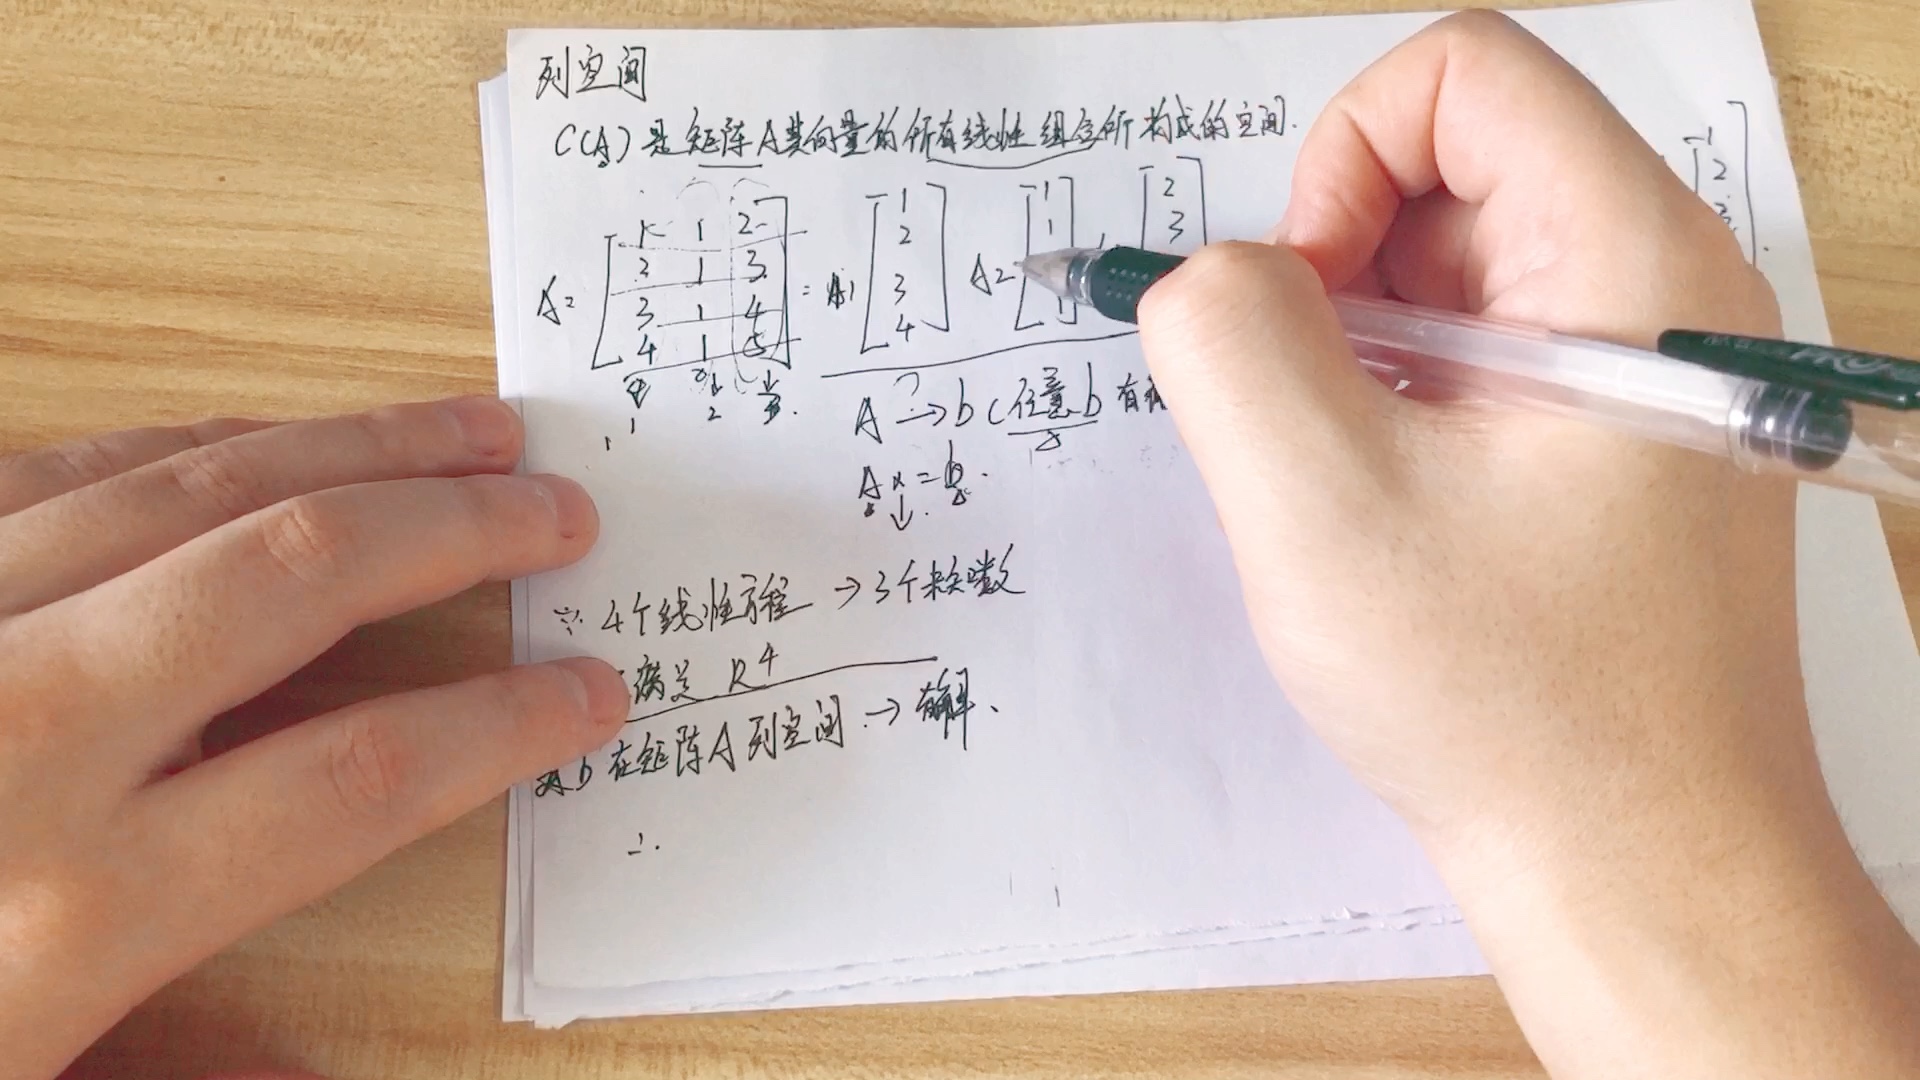 列空间
C(A) 是矩阵A其向量的所有线性组合所构成的空间.
A= [1 1 2
2 1 3
3 1 4
4 1 5] = A1 [1 2 3 4] A2 [1 1 1] [2 3
1 2 3.
A → b (任意b 有
?
Ax = b.
↓.
4个线性方程 → 3个未知数
满足 R4
b 在矩阵A列空间. → 有解、
∴